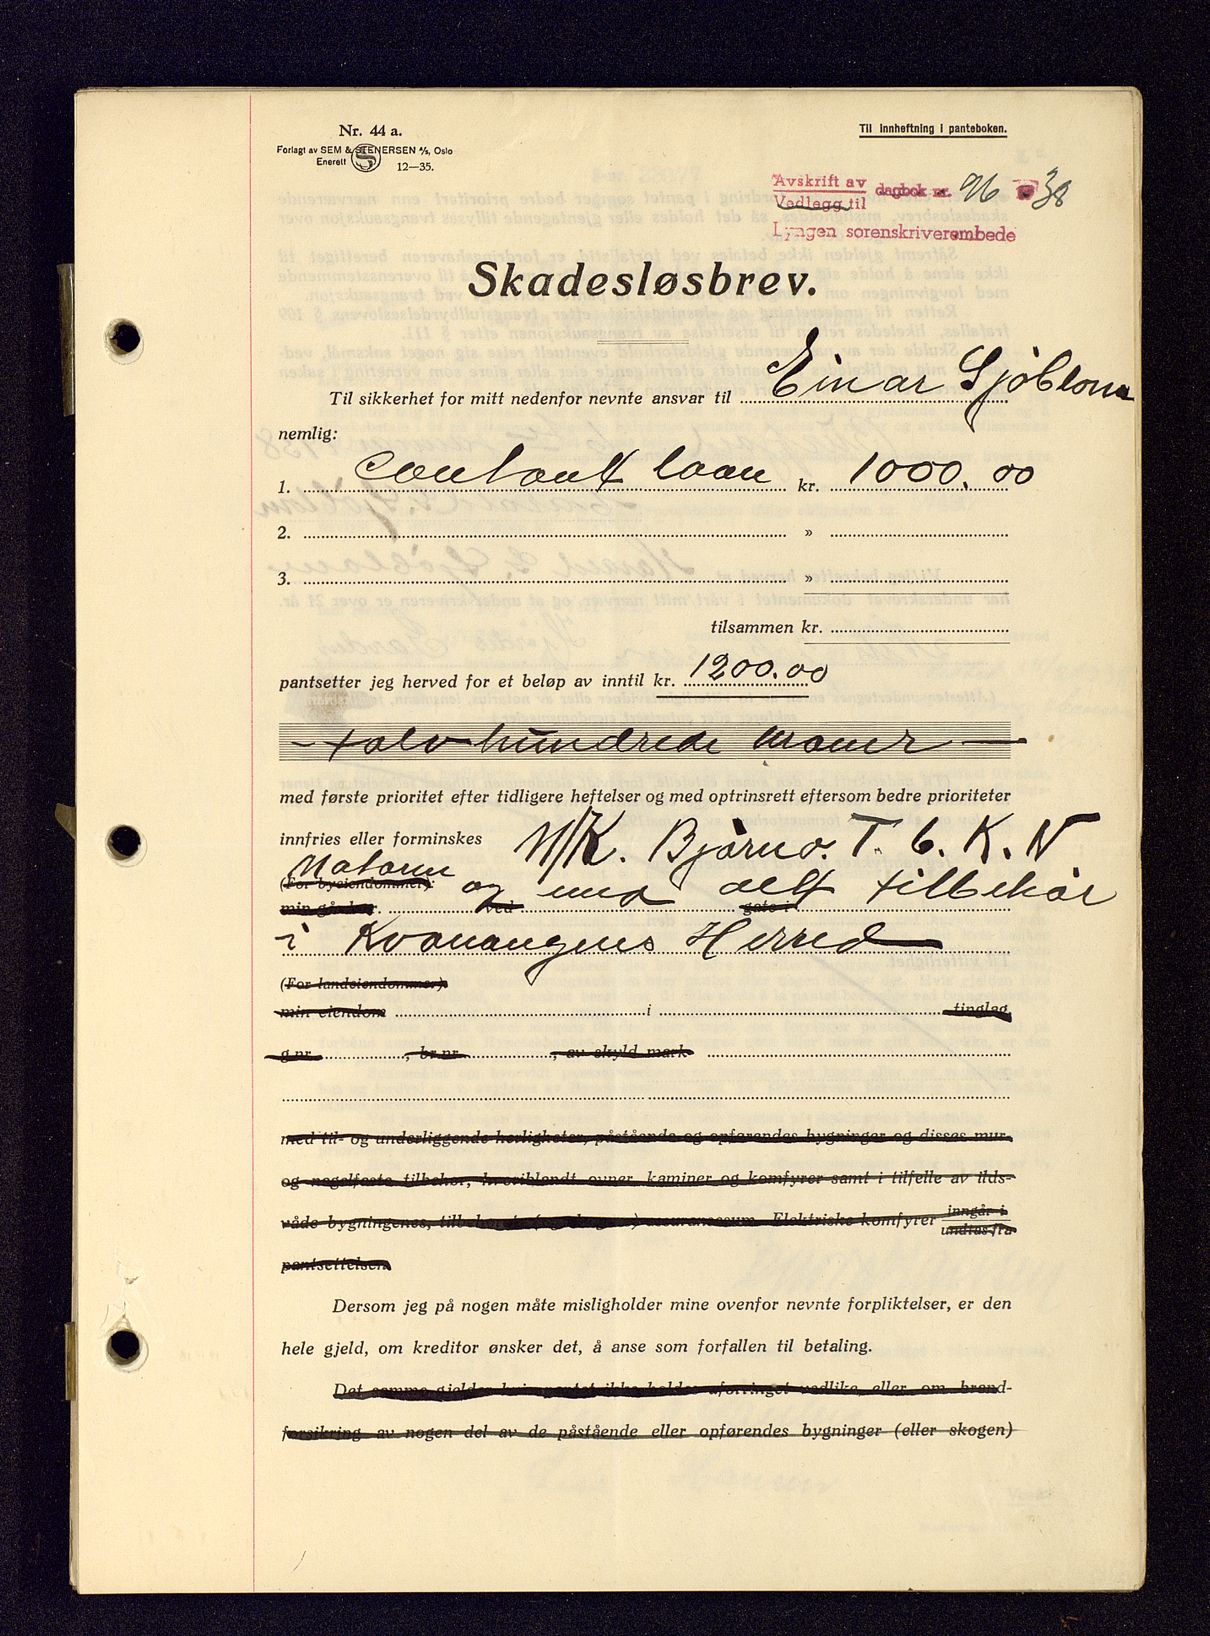 Nr. 44 a.
Forlagt av SEM & STENERSEN A/S, Oslo
Enerett S 12—35.
Til innheftning i panteboken.
Avskrift av dagbok nr. 96 38
Vedlegg til
Lyngen sorenskriverembede
Skadesløsbrev.
Til sikkerhet for mitt nedenfor nevnte ansvar til Einar Sjöblom
nemlig:
1. Contant laan kr. 1000.00
2. »
3. »
tilsammen kr.
pantsetter jeg herved for et beløp av inntil kr. 1200.00
— tolv hundrede kroner —
med første prioritet efter tidligere heftelser og med optrinsrett eftersom bedre prioriteter
innfries eller forminskes M/K. Bjørno. T. 6. K. N
Motoren
(For byeiendommer):
min gård nr. ved og med gate i alt tilbehör
i Kvænangens Herred
(For landeiendommer).
min eiendom i tinglag,
g.nr. , br.nr. , av skyld mark
med til- og underliggende herligheter, påstående og opførendes bygninger og disses mur-
og nagelfaste tilbehør, hvoriblandt ovner, kaminer og komfyrer samt i tilfelle av ilds-
våde bygningenes, tilbehørets assuransesum. Elektriske komfyrer inngår i
undtas fra
pantsettelsen.
Dersom jeg på nogen måte misligholder mine ovenfor nevnte forpliktelser, er den
hele gjeld, om kreditor ønsker det, å anse som forfallen til betaling.
Det samme gjelder hvis pantet ikke holdes uforringet vedlike, eller om brand-
forsikring av nogen del av de påstående eller opførendes bygninger (eller skogen)